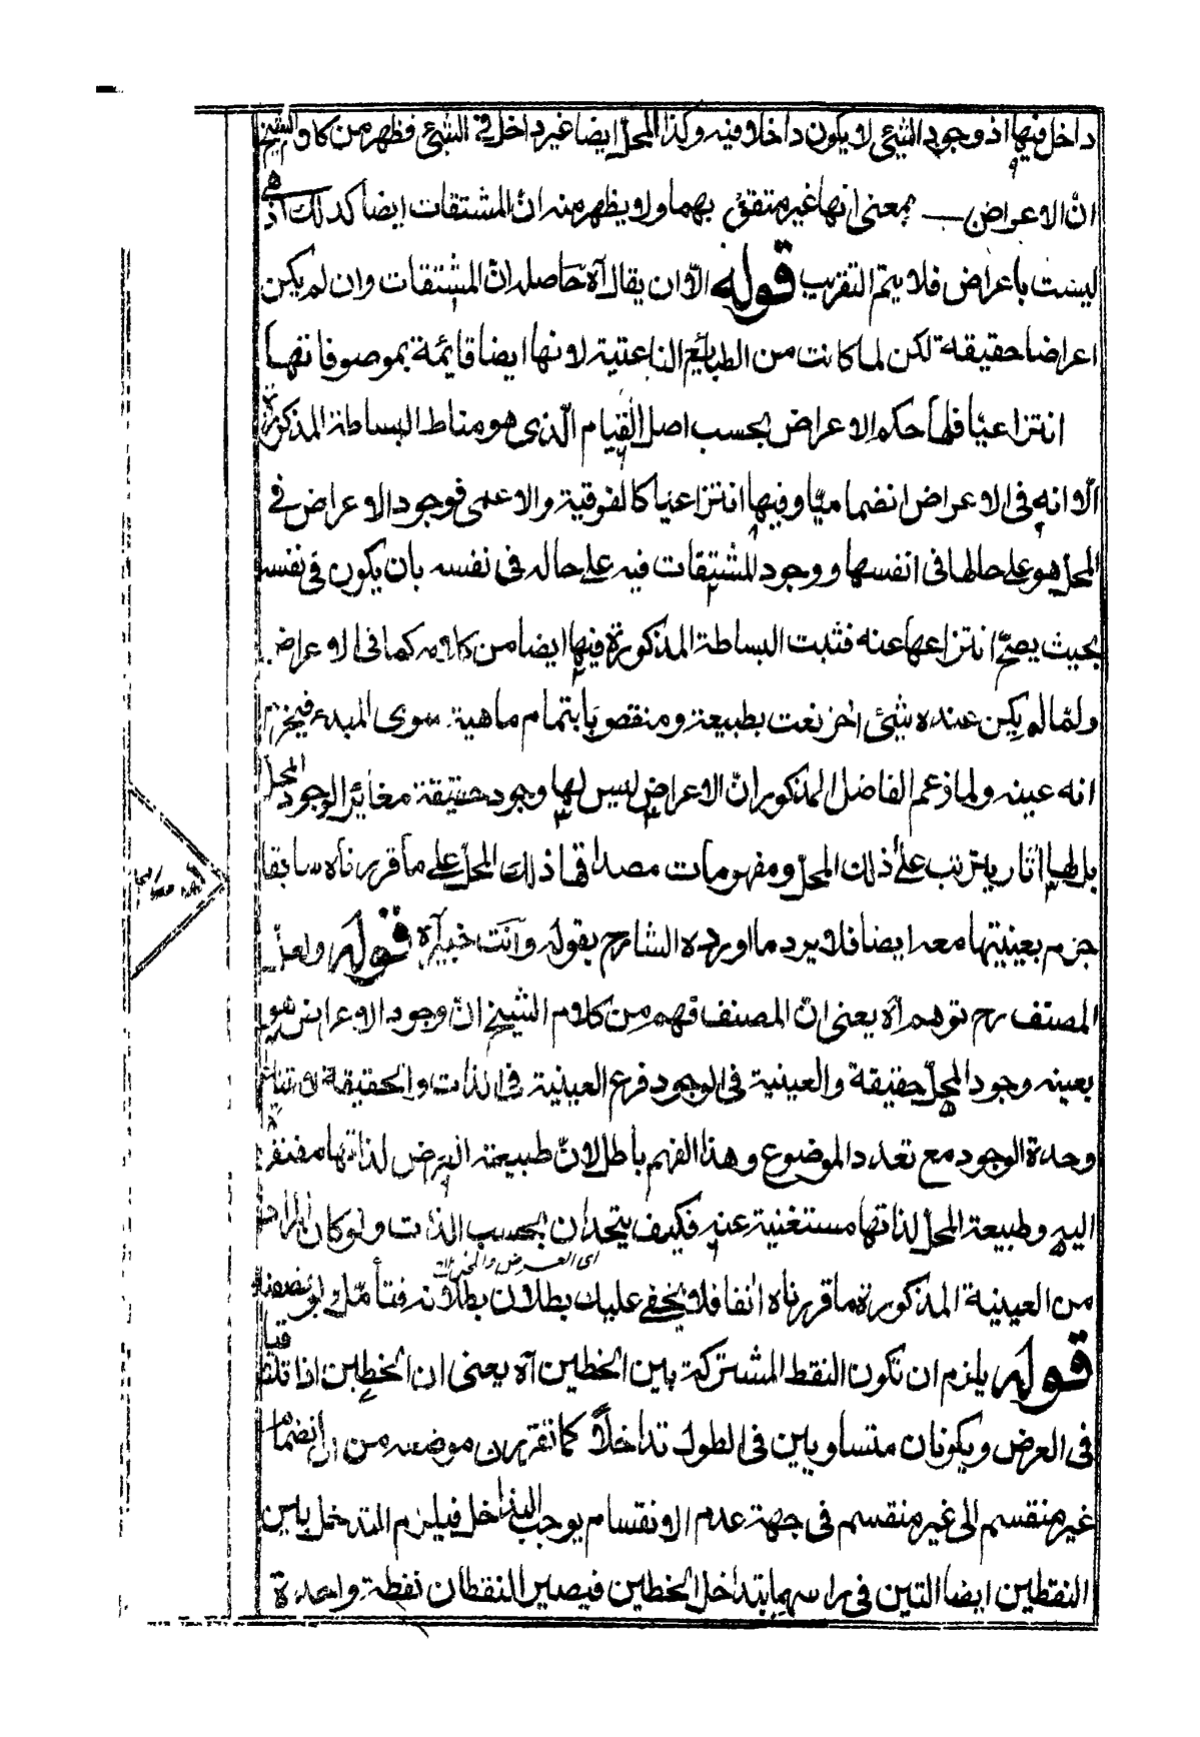 داخل فيها اذ وجود الشيئ لا يكون داخلا فيه وكذا المحل ايضا غير داخل في الشيئ فظهر من كلام الشيخ
انّ الاعراض بمعنى انها غير متفقة بهما ولا يظهر منه انّ المشتقات ايضا كذلك اذ هى
ليست باعراض فلا يتمّ التقريب قوله الّا ان يقال آه حاصله انّ المشتقات وان لم يكن
اعراضا حقيقة لكن لما كانت من الطبائع الناعتية لانها ايضا قائمة بموصوفاتها
انتزاعيّا فلها حكم الاعراض بحسب اصل القيام الّذى هو مناط البساطة المذكورة
الّا انه فى الاعراض انضماميّا وفيها انتزاعيا كالفوقية والاعمى فوجود الاعراض فى
المحل هو على حالها فى انفسها ووجود المشتقات فيه على حاله فى نفسه بان يكون فى نفسه
بحيث يصحّ انتزاعها عنه فثبت البساطة المذكورة فيها ايضا من كلامه كما فى الاعراض
ولمّا لم يكن عنده شيئ اخر نعت بطبيعة ومنقصوبا بتمام ماهية سوى المبدء فيجزم
انه عينه ولما زعم الفاضل المذكور انّ الاعراض ليس لها وجود حقيقة مغائر الوجود المحل
بل لها اثار يترتب على ذلك المحل ومفهومات مصداقها ذلك المحل على ما قررناه سابقا
جزم بعينيتها معه ايضا فلا يرد ما اورده الشارح بقوله وانت خبير آه قوله ولعل
المصنف رح توهم آه يعنى انّ المصنف فهم من كلام الشيخ انّ وجود الاعراض هو
بعينه وجود المحلّ حقيقة والعينية فى الوجود فرع العينية فى الذات والحقيقة لامتناع
وحدة الوجود مع تعدد الموضوع وهذا الفهم باطل لانّ طبيعة العرض لذاتها مفتقرة
اليه وطبيعة المحل لذاتها مستغنية عنه فكيف يتحدان بحسب الذات ولو كان المراد
اى العرض والمحل
من العينية المذكورة ما قررناه انفا فلا يخفى عليك بطلان بطلانه فتأمّل
قوله يلزم ان تكون النقط المشتركة بين الخطين آه يعنى ان الخطين اذا تلاقيا
فى العرض ويكونان متساويين فى الطول تداخلا كما تقرر فى موضعه من ان انضمام
غير منقسم الى غير منقسم فى جهة عدم الانقسام يوجب التداخل فيلزم التدخل بين
النقطين ايضا التين فى راسهما بتداخل الخطين فيصير النقطان نقطة واحدة